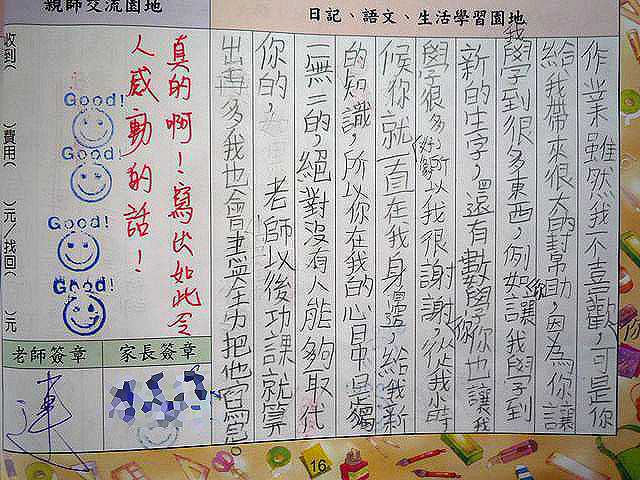 日記、語文、生活學習園地
作業雖然我不喜歡,可是你
給我帶來很大的幫助,因為你讓
我學到很多東西,例如你讓我學到
新的生字,還有數學你也讓我
學了很多知識,所以我很謝謝你,從我小時
候你就一直在我身邊,給我新
的知識,所以你在我的心目中是獨
一無二的,絕對沒有人能夠取代
你的,老師以後功課就算
出再多我也會盡全力把他寫完。
親師交流園地
真的啊!寫出如此令
人感動的話!
Good!
Good!
Good!
Good!
收到(
)費用(
)元/找回(
)元
家長簽章
老師簽章
16